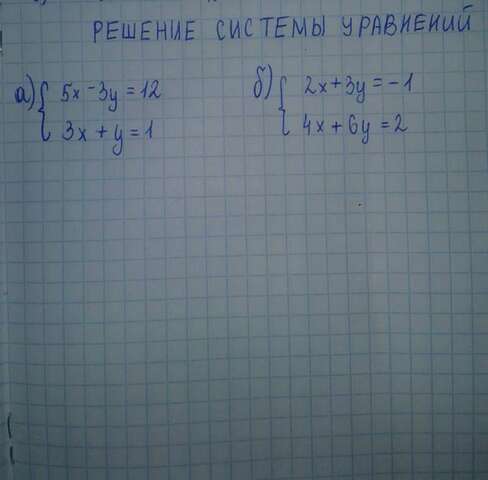 РЕШЕНИЕ СИСТЕМЫ УРАВНЕНИЙ
а) { 5x - 3y = 12
3x + y = 1
б) { 2x + 3y = -1
4x + 6y = 2